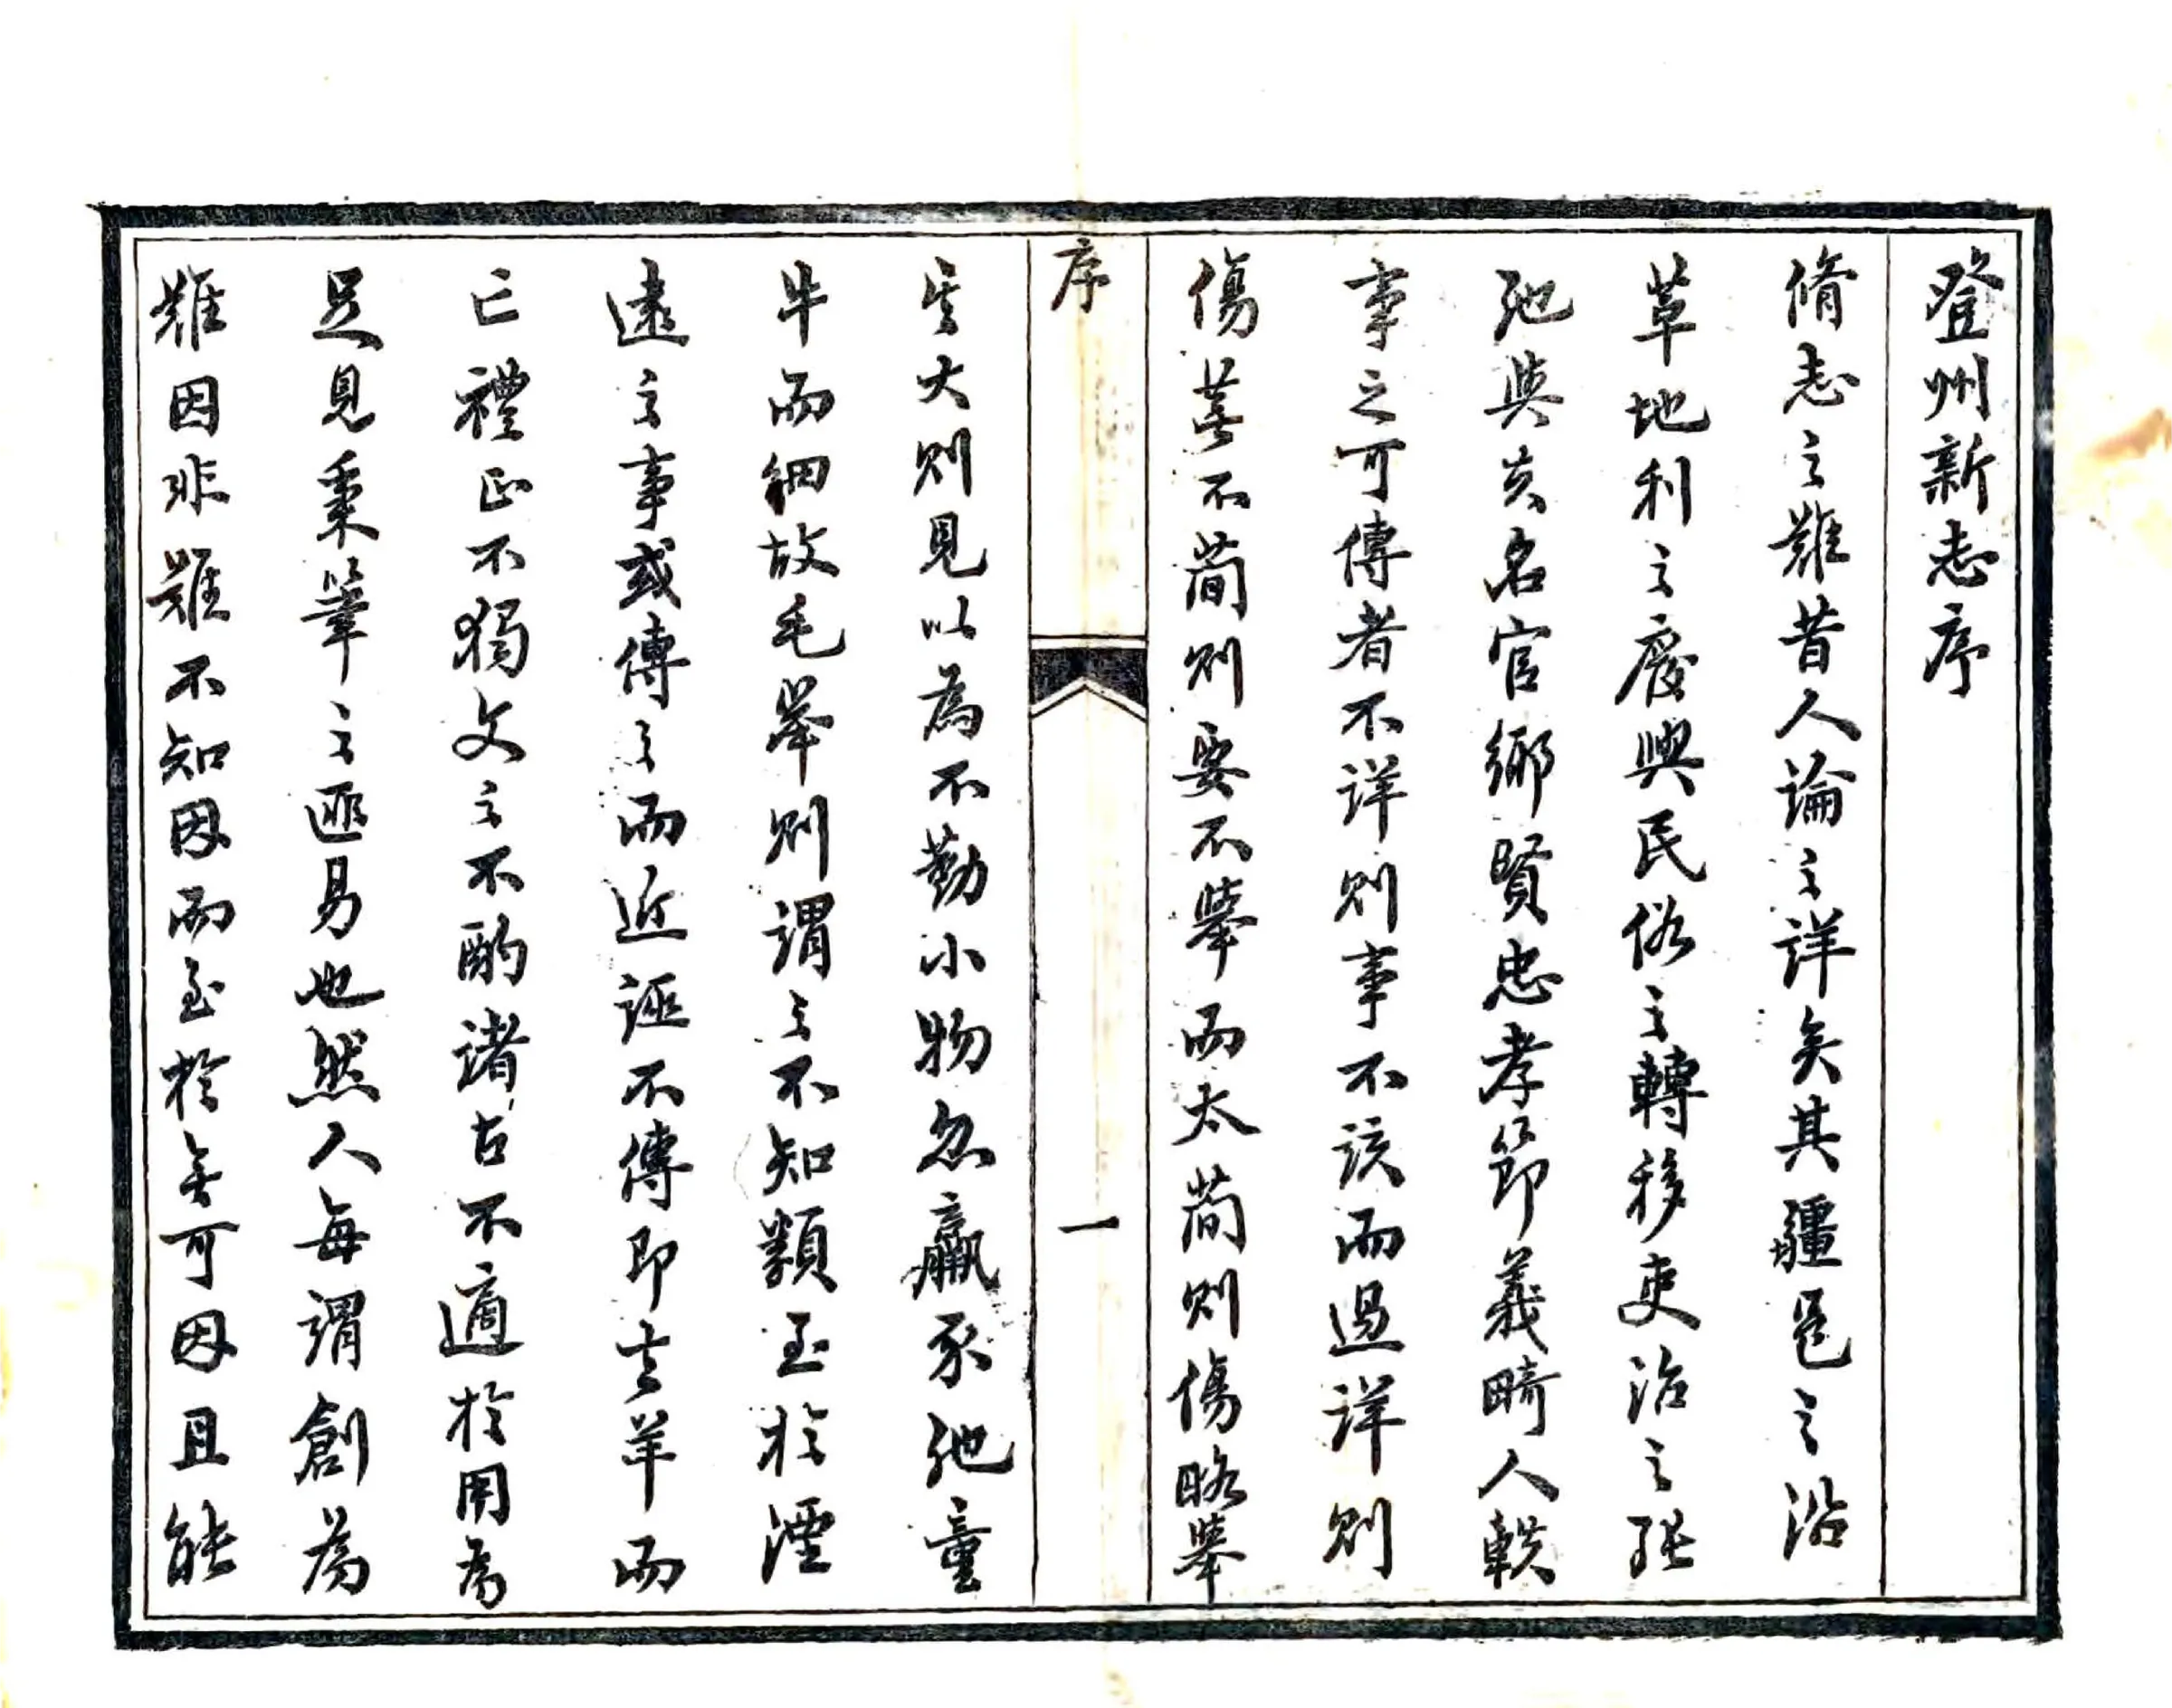 登州新志序
脩志之難昔人論之詳矣其疆邑之沿
革地利之廢興民俗之轉移吏治之張
弛與夫名官鄉賢忠孝節義畸人軼
事之可傳者不詳則事不該而過詳則
傷蕪不簡則要不舉而太簡則傷略舉
序
一
其大則見以為不勤小物忽羸豕弛童
牛而細故毛舉則謂之不知類至於湮
遠之事或傳之而近誣不傳即去羊而
亡禮正不獨文之不酌諸古不適於用為
足見秉筆之匪易也然人每謂創為
難因非難不知因而至於無可因且能